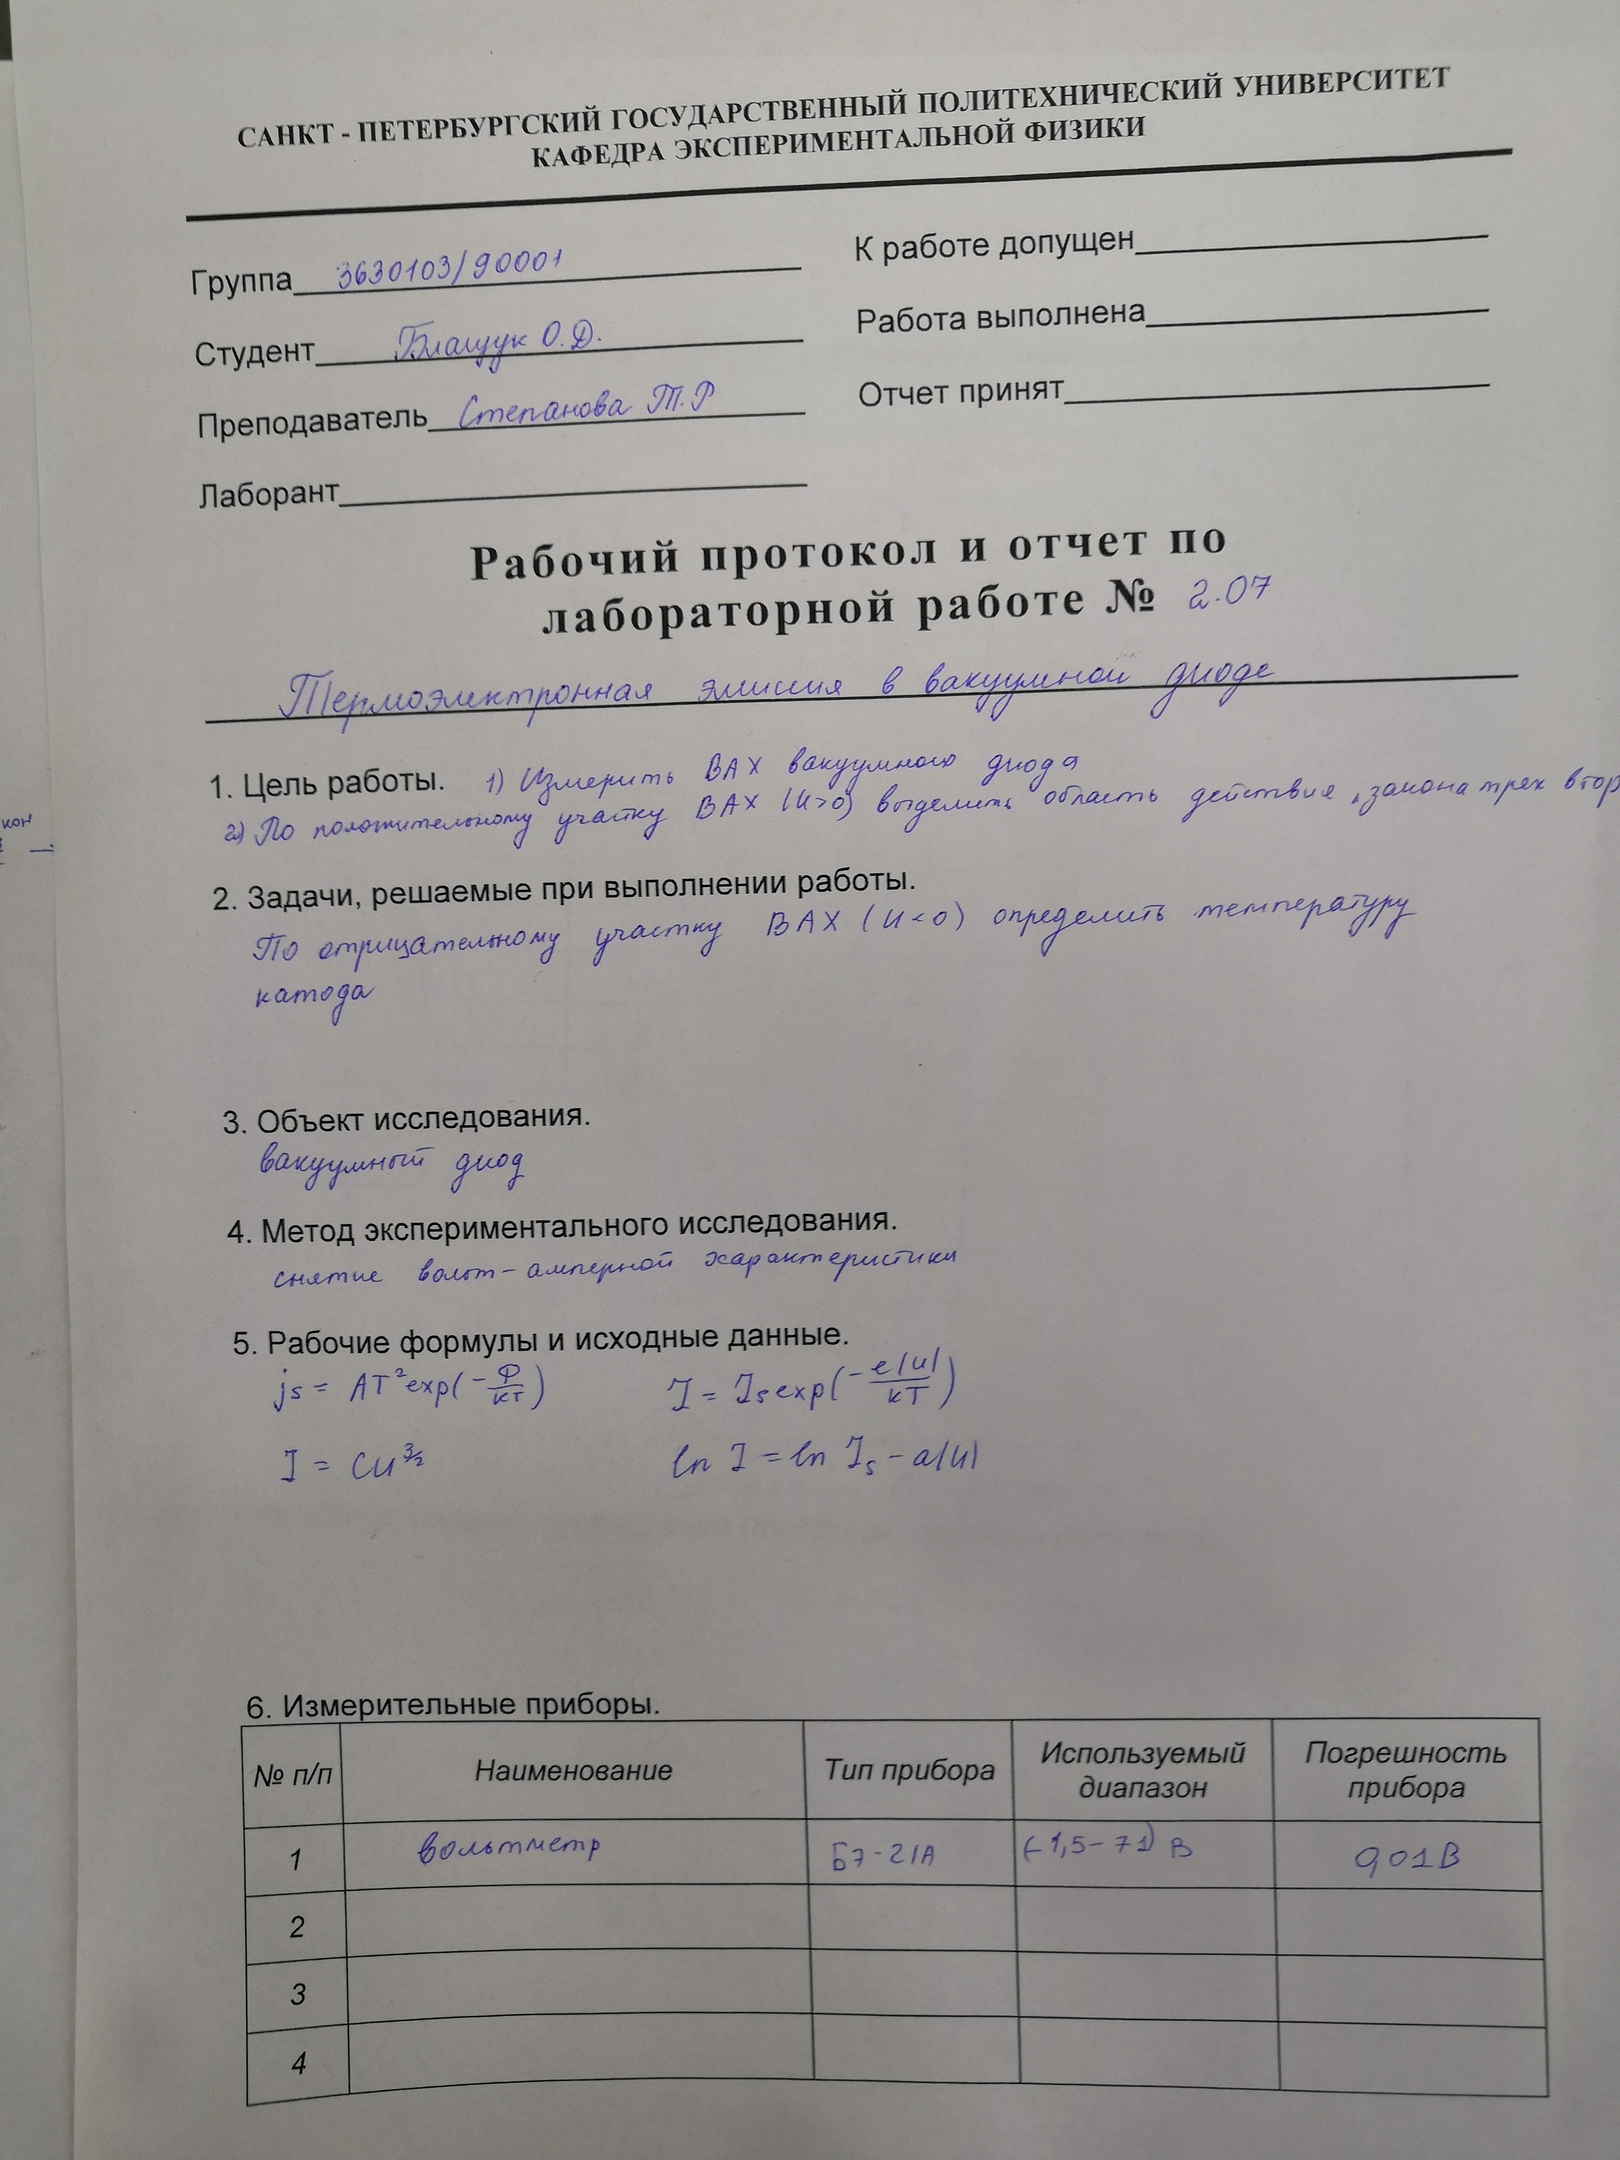 САНКТ - ПЕТЕРБУРГСКИЙ ГОСУДАРСТВЕННЫЙ ПОЛИТЕХНИЧЕСКИЙ УНИВЕРСИТЕТ
КАФЕДРА ЭКСПЕРИМЕНТАЛЬНОЙ ФИЗИКИ
Группа 3630103/90001
К работе допущен
Студент Блащук О.Д.
Работа выполнена
Преподаватель Степанова Т.Р
Отчет принят
Лаборант
Рабочий протокол и отчет по
лабораторной работе № 2.07
Термоэлектронная эмиссия в вакуумной диоде
1. Цель работы. 1) Измерить ВАХ вакуумного диода
2) По положительному участку ВАХ (U>0) выделить область действия закона трех втор
кон
2. Задачи, решаемые при выполнении работы.
По отрицательному участку ВАХ (U<0) определить температуру
катода
3. Объект исследования.
вакуумный диод
4. Метод экспериментального исследования.
снятие вольт-амперной характеристики
5. Рабочие формулы и исходные данные.
js = AT² exp(-Φ/кT) I = Is exp(-e|U|/кT)
I = CU^3/2 ln I = ln Is - a|U|
6. Измерительные приборы.
№ п/п Наименование Тип прибора Используемый диапазон Погрешность прибора
1 вольтметр Б7-21А (-1,5-71) В 0,01В
2
3
4